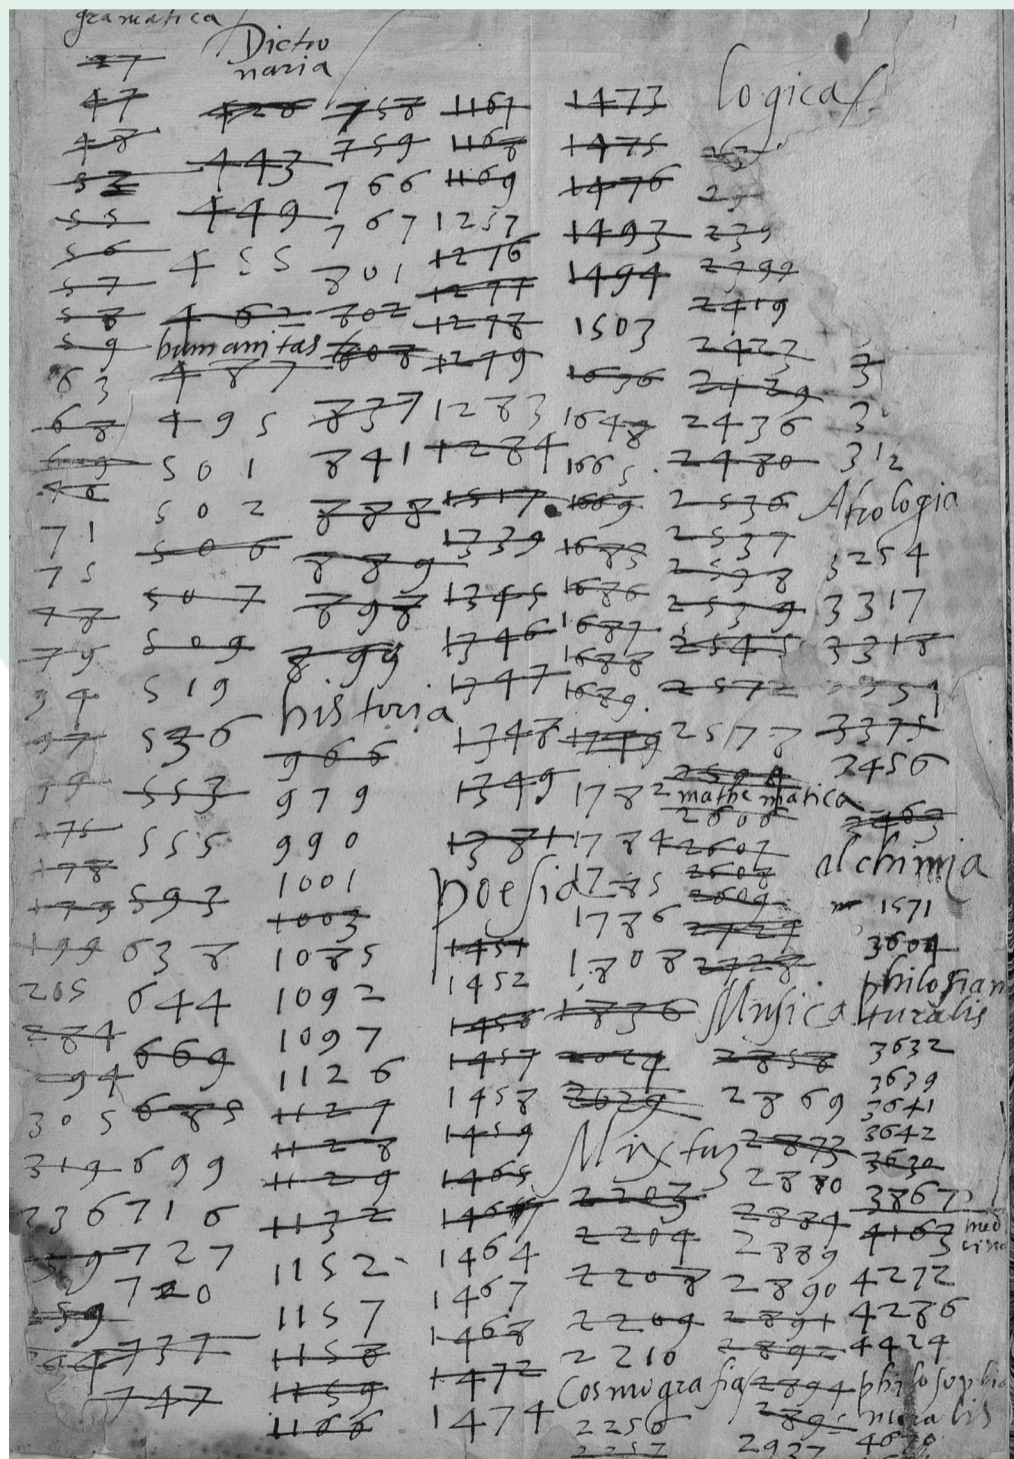 gramatica
27
47
48
53
55
56
57
58
59
63
68
69
70
71
75
77
79
94
97
99
175
178
179
199
205
284
294
305
319
336
359
Dictio
naria
428
443
449
455
462
humanitas
487
495
501
502
506
507
509
519
536
553
555
593
638
644
669
685
699
716
727
720
737
747
758
759
766
767
801
802
808
837
841
888
889
898
899
historia
966
979
990
1001
1003
1085
1092
1097
1126
1127
1128
1129
1132
1152
1157
1158
1159
1166
1167
1168
1169
1257
1276
1277
1278
1279
1283
1284
1317
1339
1345
1346
1347
1348
1349
1381
poesia
1451
1452
1456
1457
1458
1459
1465
1464
1467
1468
1472
1474
1473
1475
1476
1493
1494
1503
1636
1648
1665
1669
1683
1686
1687
1688
1689
1749
1782
1784
1785
1786
1808
1836
2024
2029
Mixtus
2203
2204
2208
2209
2210
Cosmografia
2256
2257
logica
239
2399
2419
2423
2429
2436
2480
2536
2537
2538
2539
2545
2572
2577
2594
mathematica
2606
2607
2608
2609
2727
2728
Musica
2858
2869
2873
2880
2884
2889
2890
2891
2892
2894
2895
2937
3
3
312
Astrologia
3254
3317
3318
3351
3375
3456
3463
alchimia
1571
3604
philosofia na
turalis
3632
3639
3641
3642
3630
3867
4163
medi
cina
4272
4286
4424
philosophia
moralis
4670